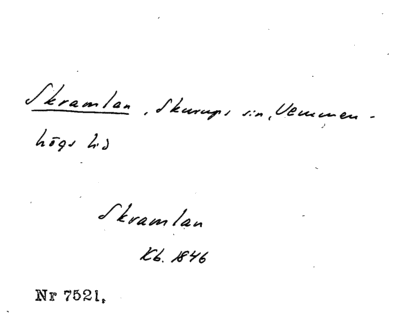 Skramlan, Skurups sn, Vemmen-
högs hd
Skramlan
Kb. 1846
Nr 7521.